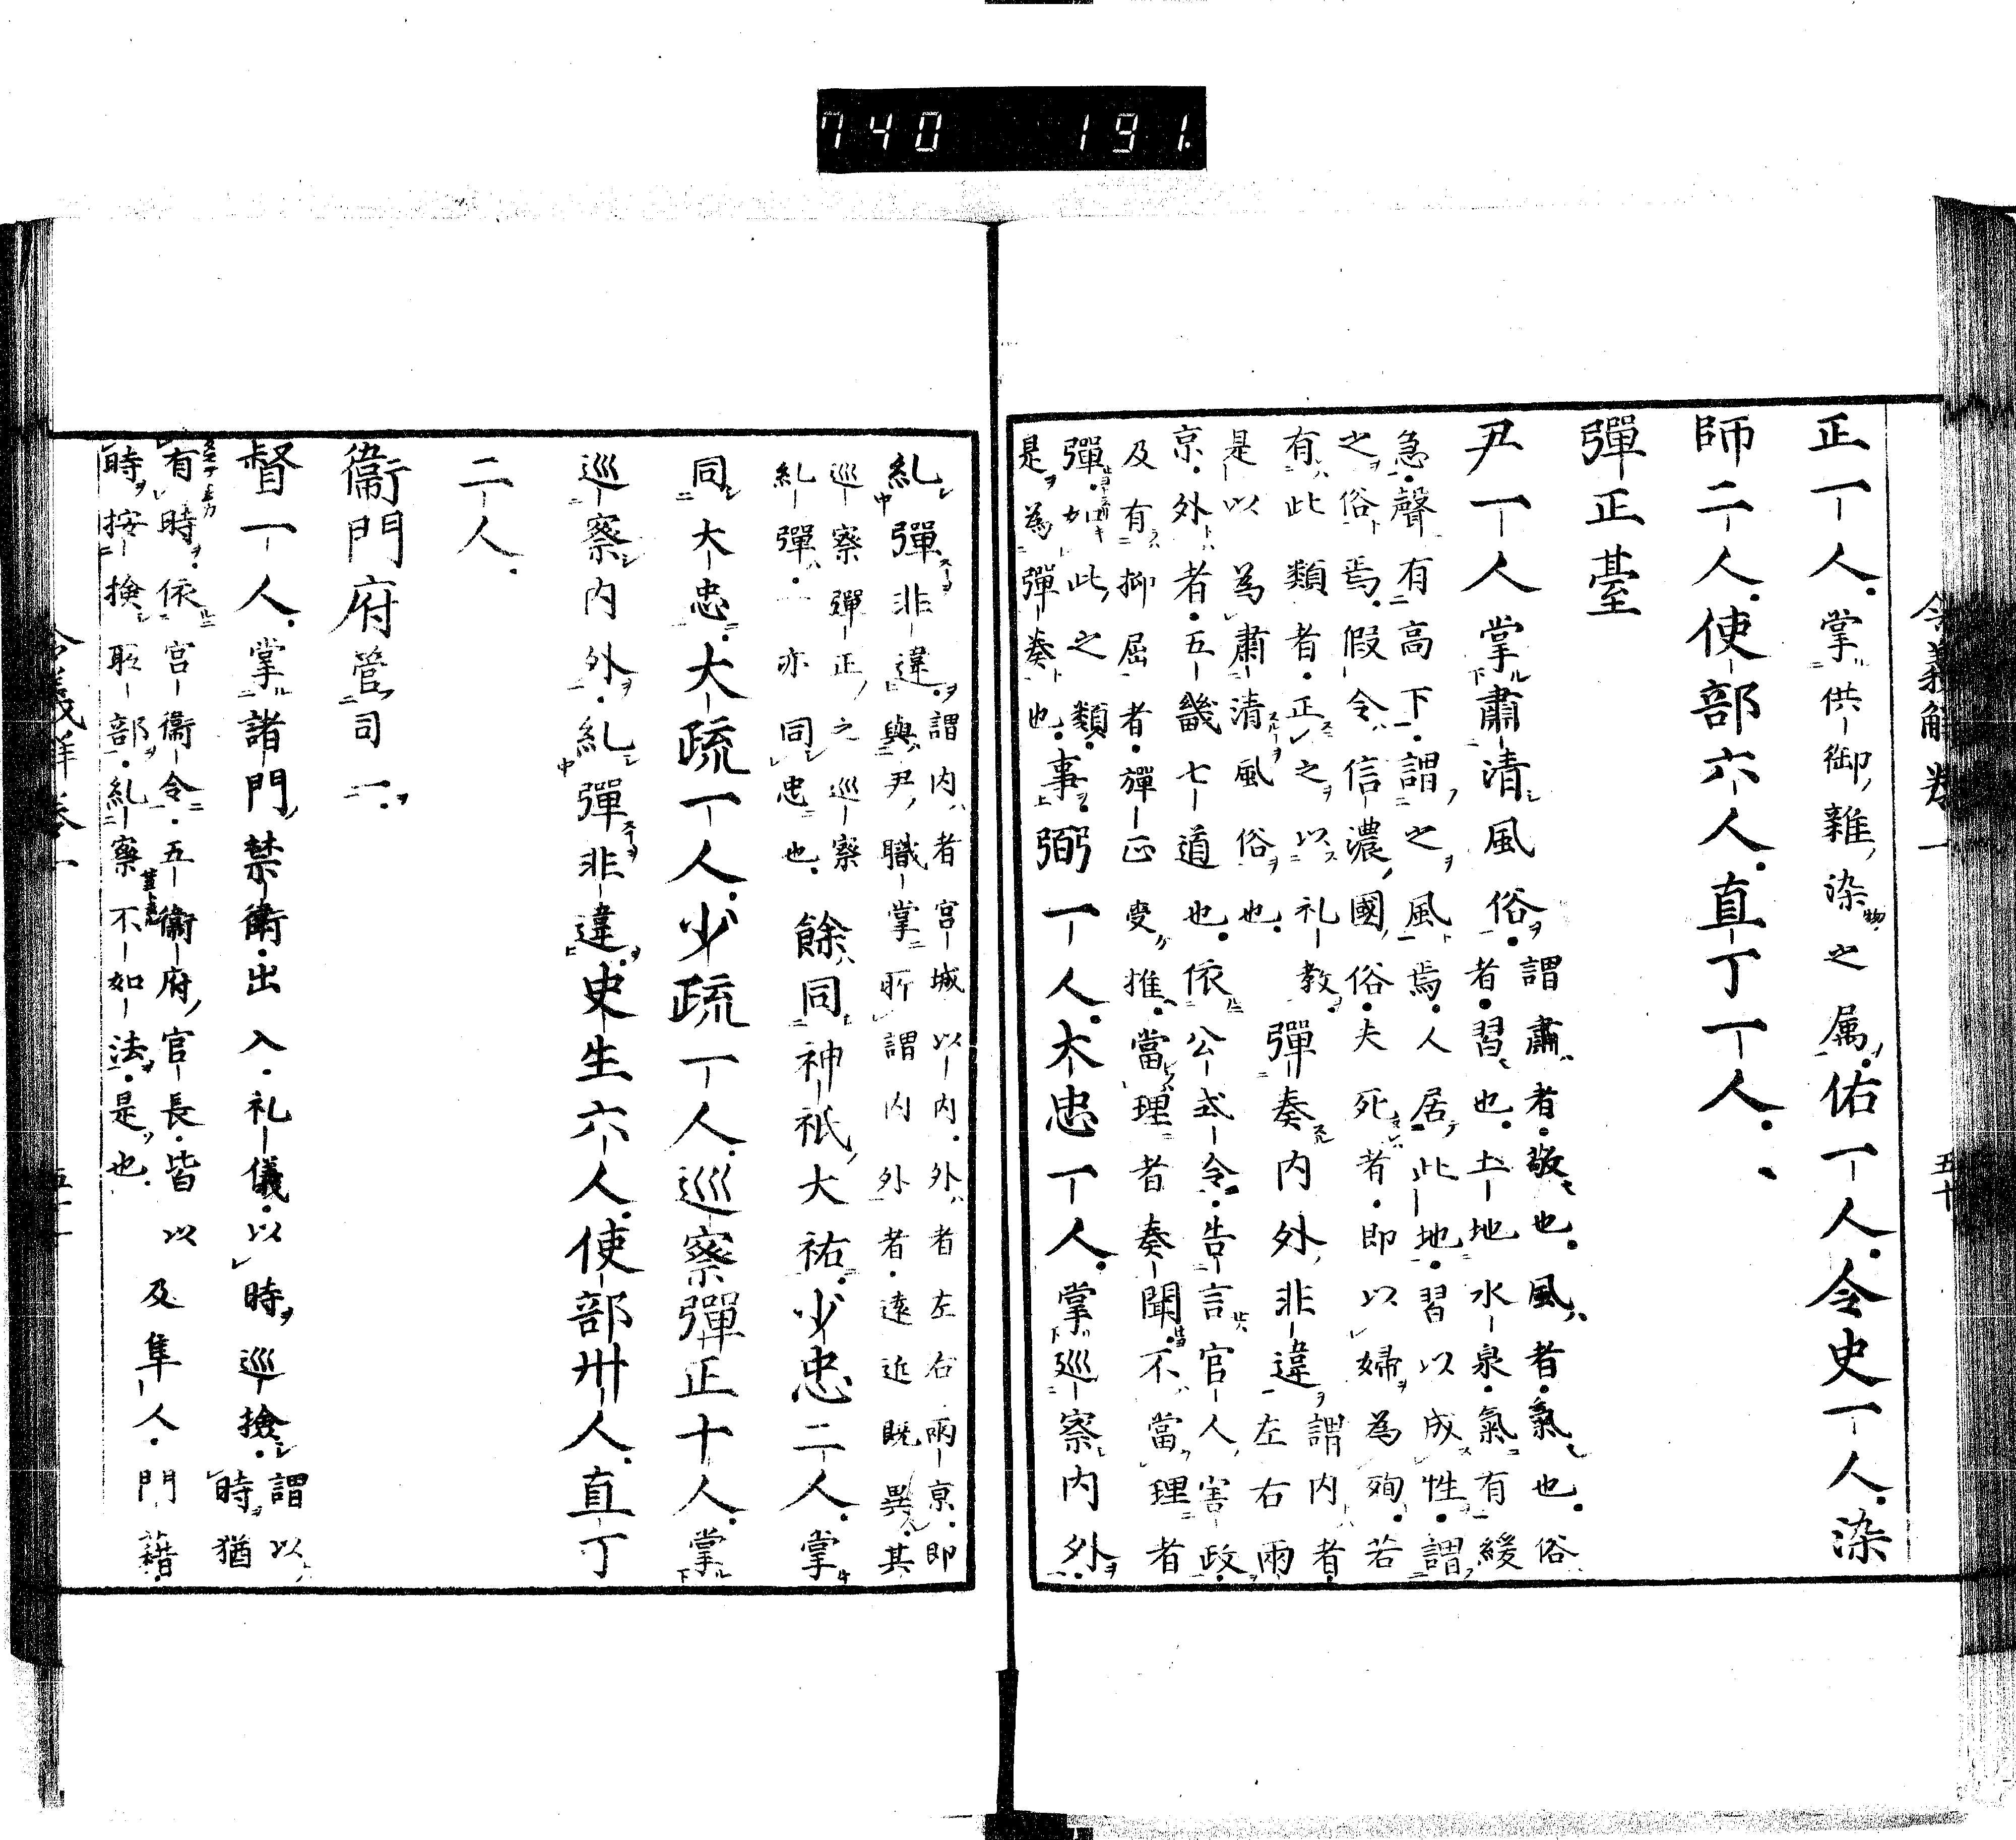 740 191.
令義解 卷一 五十
正一人。掌供御雜染之属。佑一人。令史一人。染
師二人。使部六人。直丁一人。
彈正臺
尹一人掌肅清風俗。
謂肅者。敬也。風者。氣也。俗
者。習也。土地水泉。氣有緩
急。聲有高下。謂之風焉。人居此地。習以成性。謂
之俗焉。假令信濃國俗。夫死者。即以婦為殉。若
有此類者。正之以礼教
是以為肅清風俗也。
彈奏内外非違
謂内者。
左右兩
京。外者。五畿七道也。依公式令。告言官人害政。
及有抑屈者。彈正受推。當理者奏聞。不當理者
彈。如此之類。
是為彈奏也。
事。弼一人。大忠一人。掌巡察内外。
糺彈非違。
謂内者宮城以内。外者左右兩京。即
與尹職掌所謂内外者。遠近既異。其
巡察彈正之巡察
糺彈。亦同忠也。
餘同神祇大祐。少忠二人。掌
同大忠。大疏一人。少疏一人。巡察彈正十人。掌
巡察内外。糺彈非違。史生六人。使部卅人。直丁
二人。
衞門府管司一。
督一人。掌諸門禁衞。出入。礼儀。以時巡撿。
謂以
時猶
有時。依宮衞令。五衞府官長。皆以
時按撿所部。糺察不如法。是也。
及隼人。門藉。
令義解 卷一 五十一